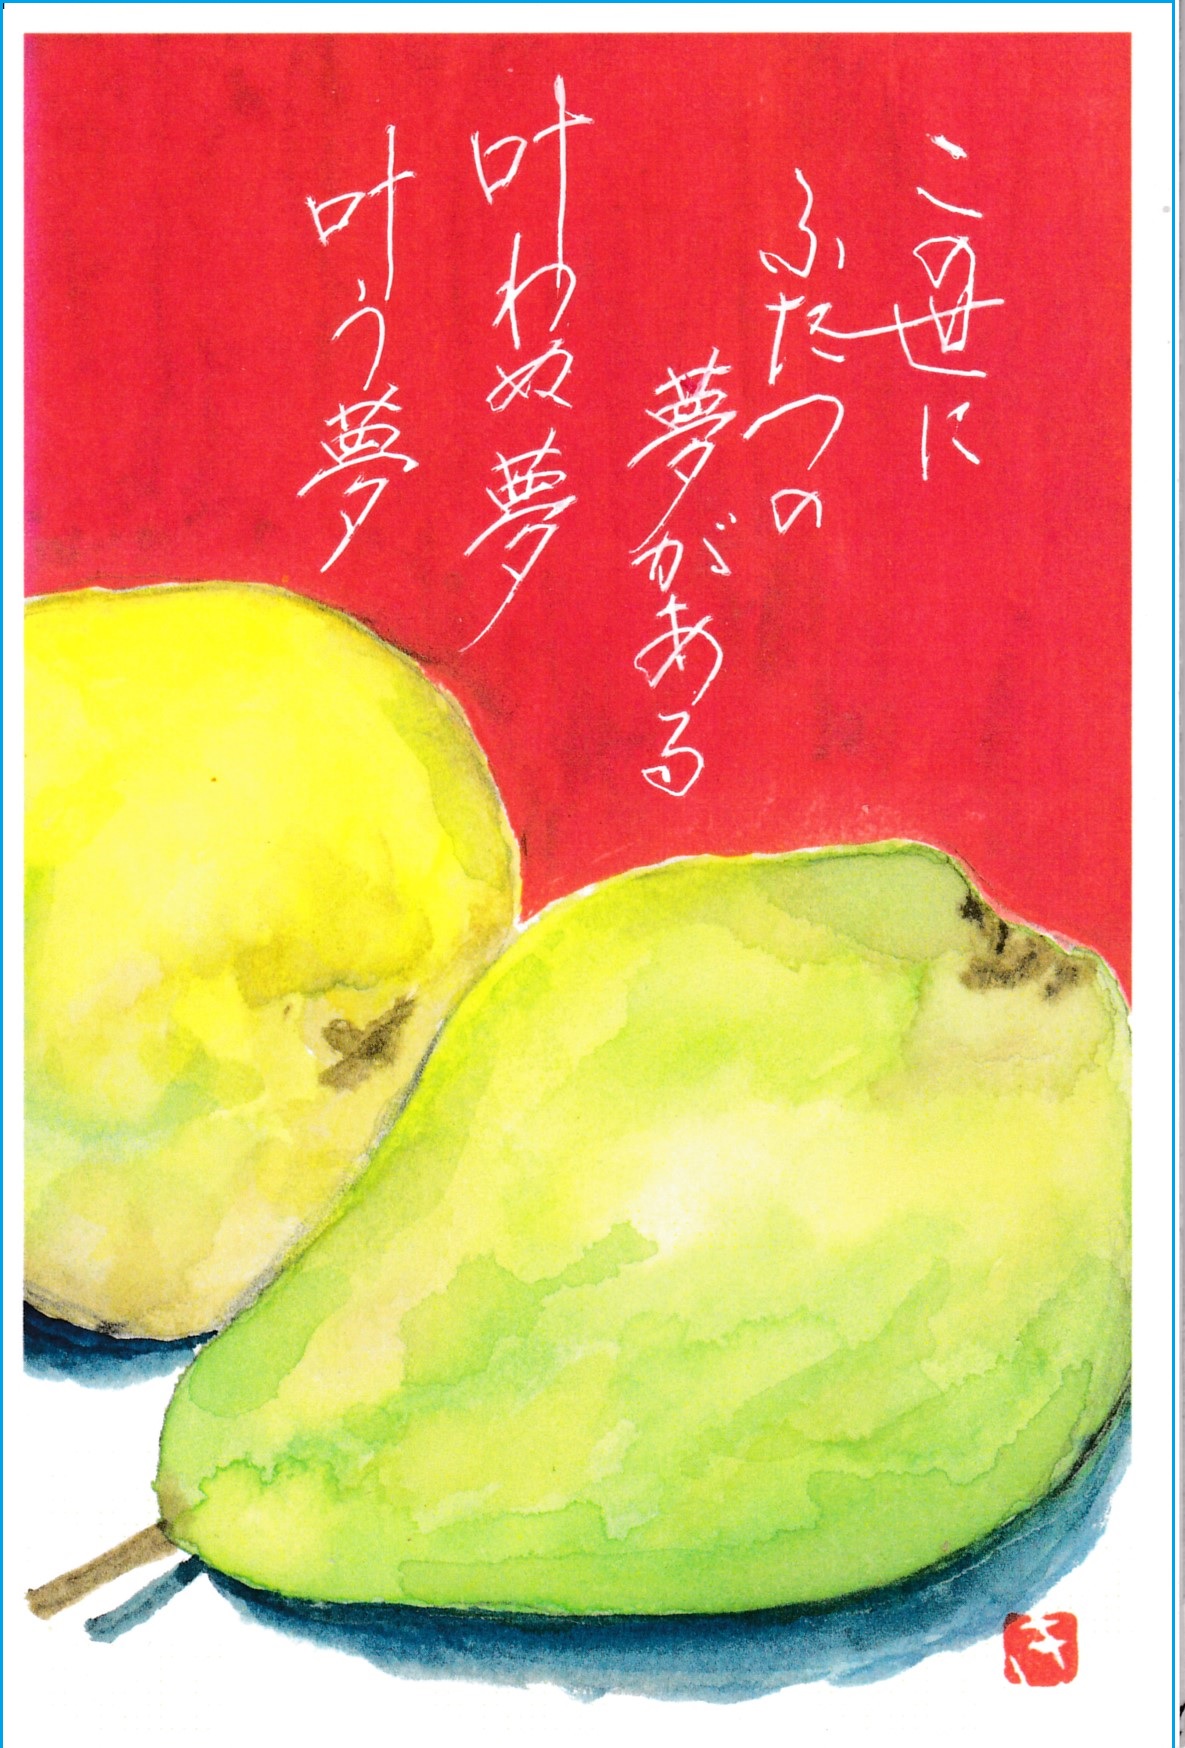 この世に
ふたつの
夢がある
叶わぬ夢
叶う夢